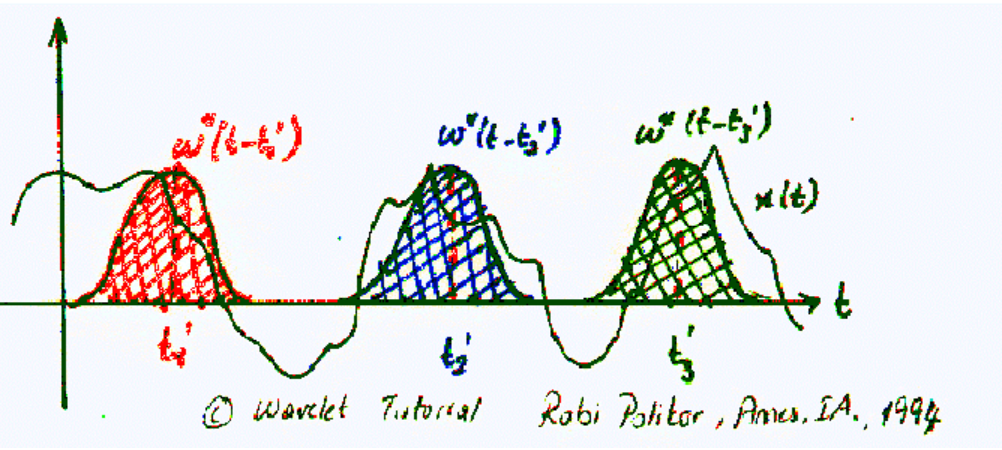 ω*(t-t₁') ω*(t-t₂') ω*(t-t₃')
x(t)
t
t₁' t₂' t₃'
© Wavelet Tutorial Robi Polikar, Ames, IA., 1994